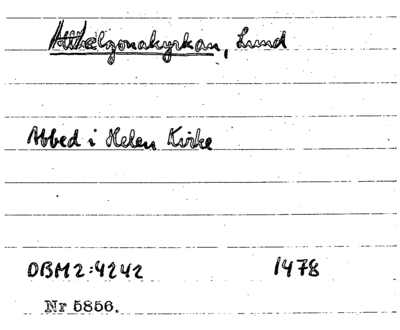 Allhelgonakyrkan, Lund
Abbed i Helen Kirke
DBM2:4242 1478
Nr 5856.